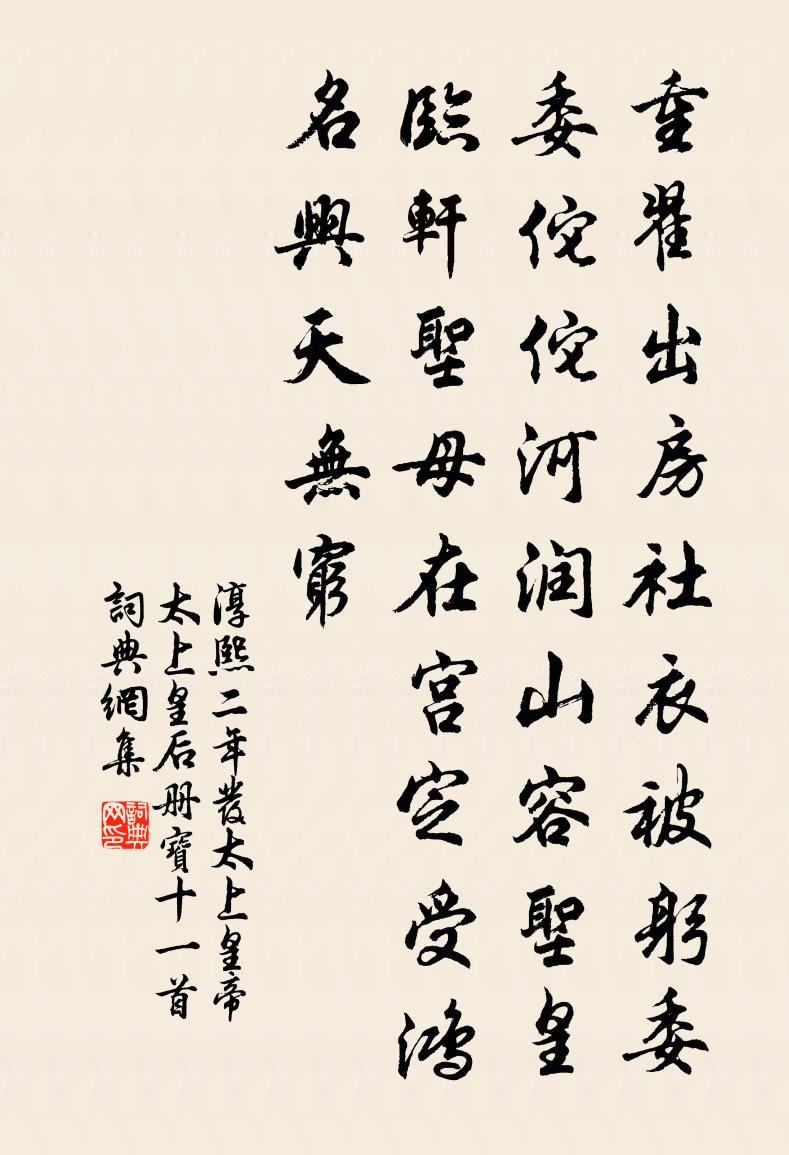 重翟出房社衣被躬委
委佗佗河润山容聖皇
臨軒聖母在宫定受鴻
名興天無窮
淳熙二年發太上皇帝
太上皇后册寶十一首
詞典網集
詞典
网印